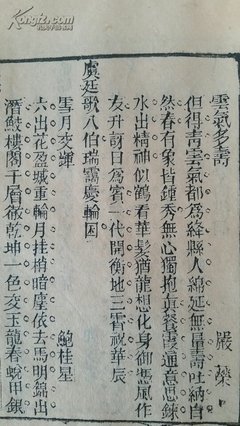 雲氣多壽 嚴榮
但得青雲氣都爲絳縣人綿延無量壽吐納自
然春有象皆鍾秀無心獨抱真餐霞通意思鍊
水出精神似鶴看華髮猶龍想化身御憑風作
友升訝日爲賓一代開衡地三霄祝華辰
虞廷歌八伯瑞靄慶輪囷
雪月交輝 鮑桂星
六出花盈城重輪月挂梢暗塵依去馬明鏡出
潛鮫樓閣千層徹乾坤一色交玉龍春蛻甲銀